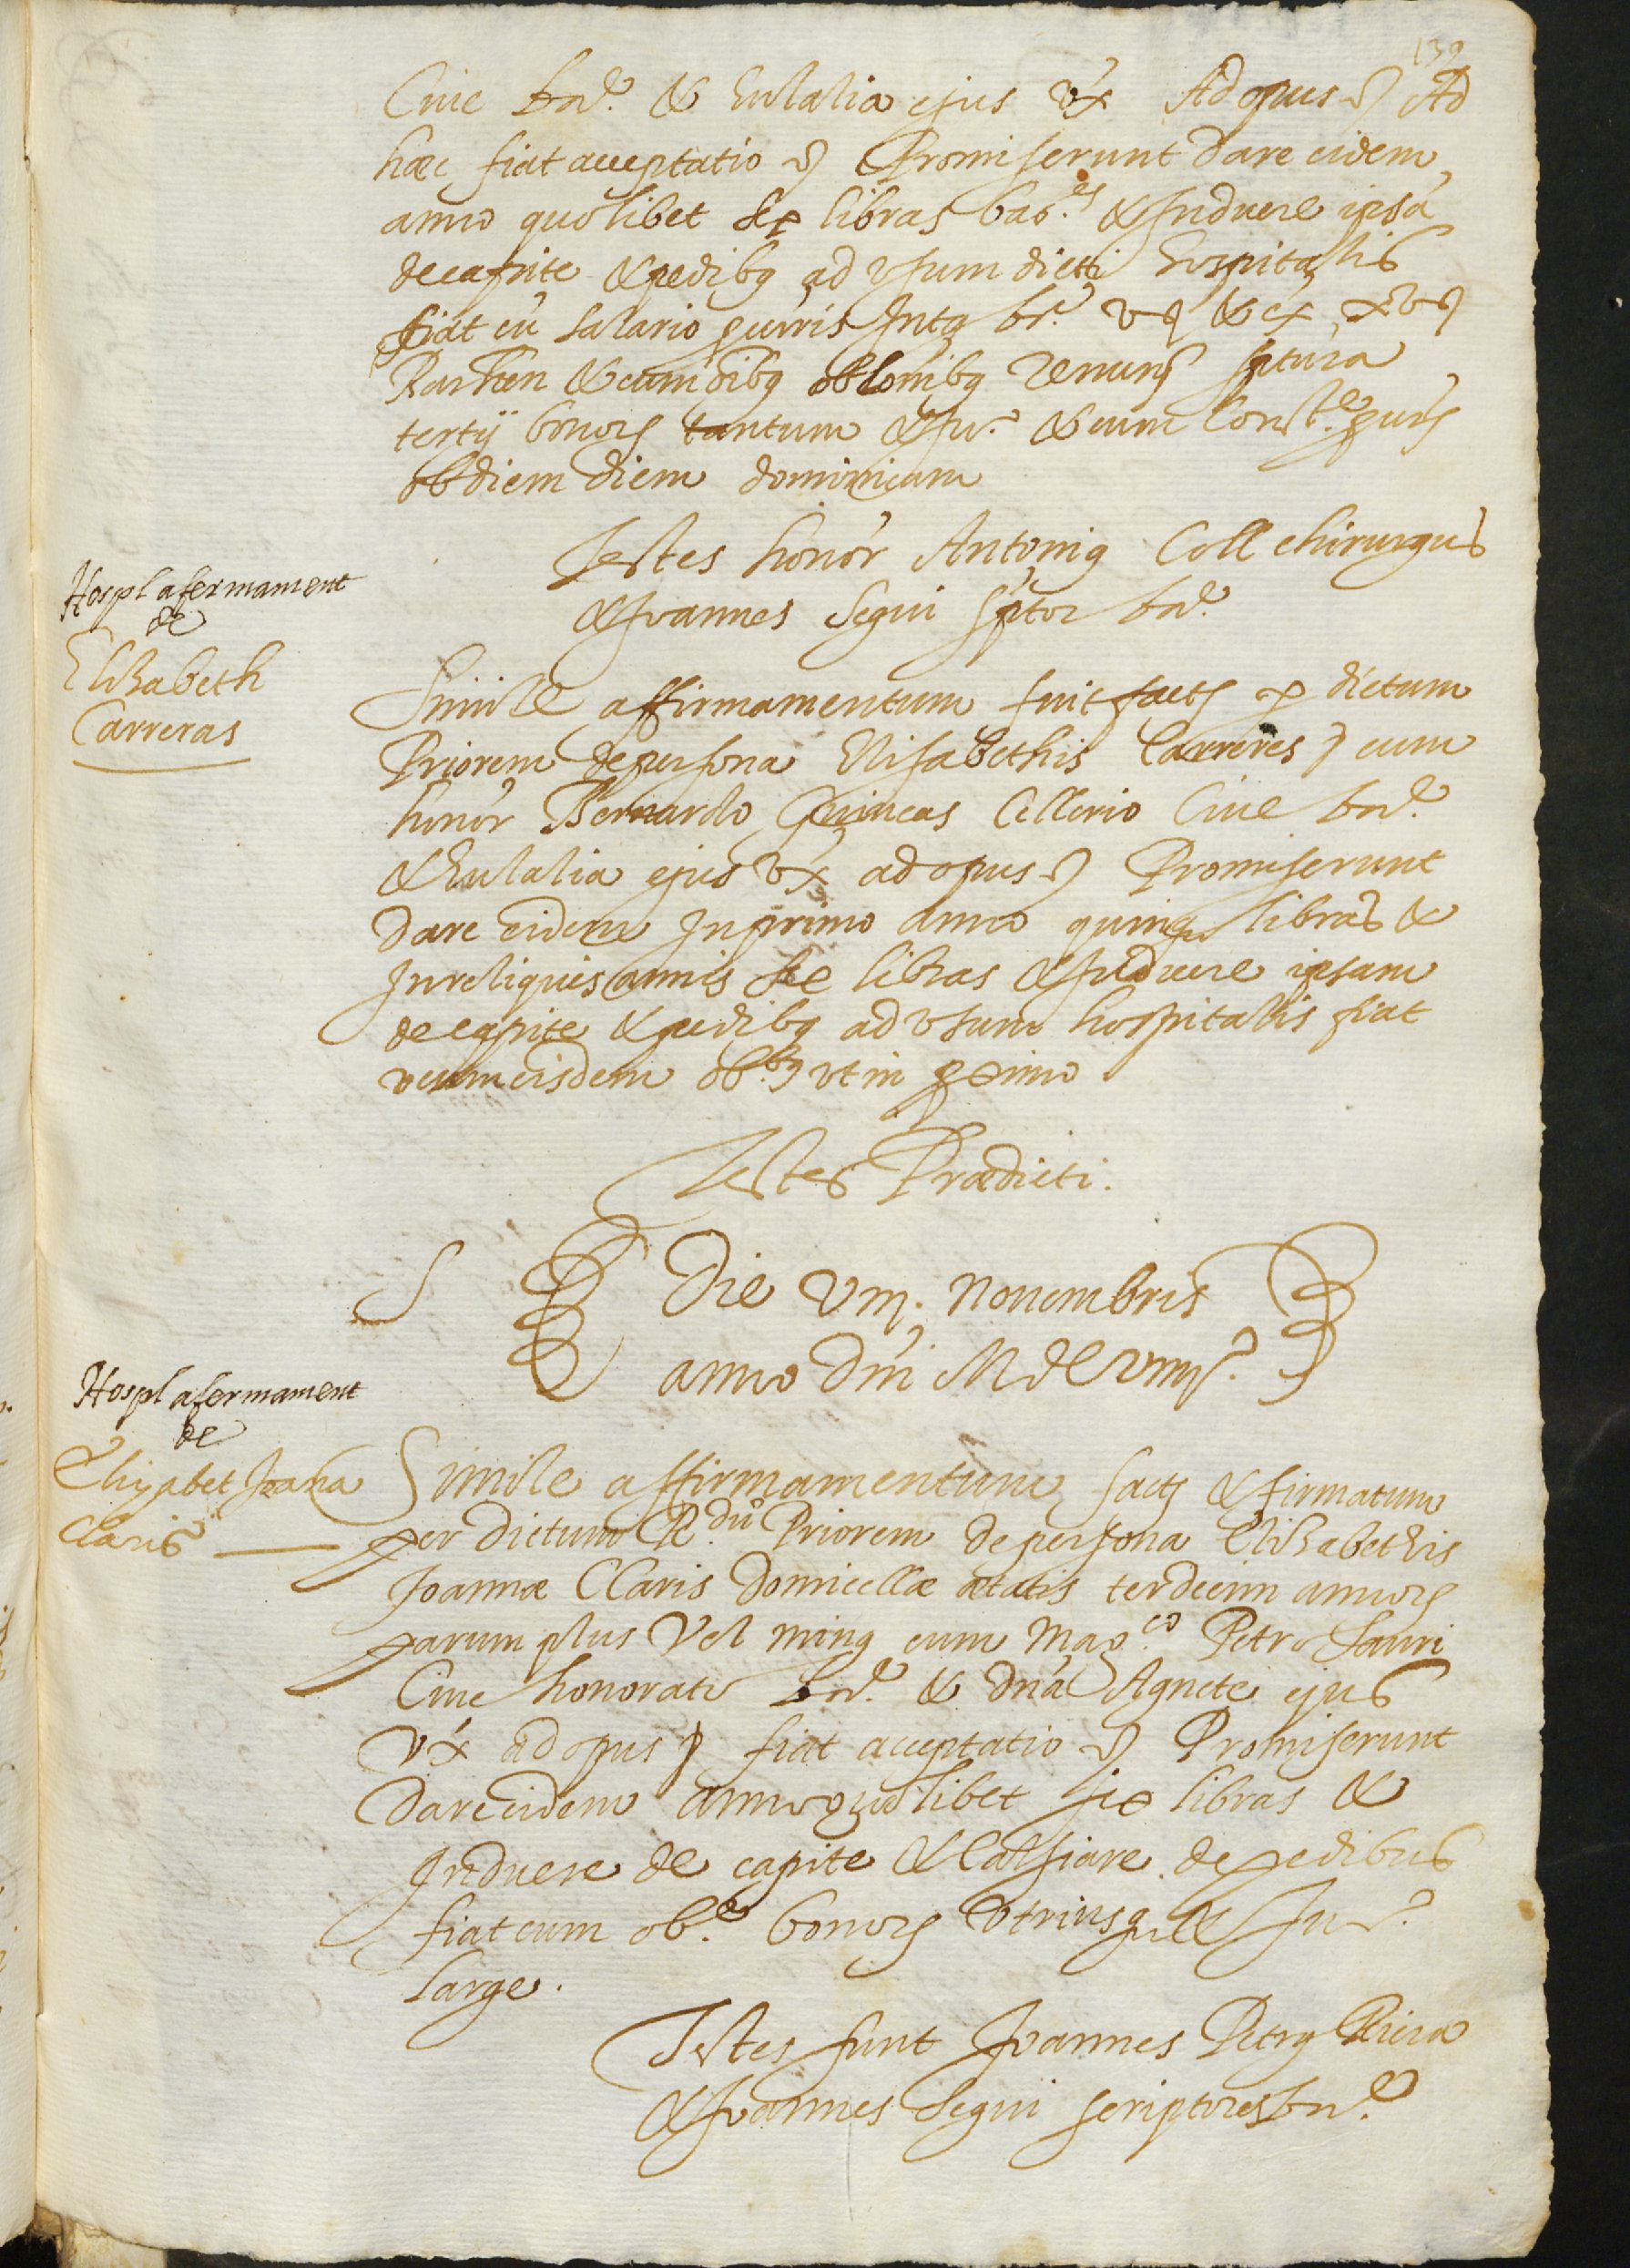 139
Ciue bar. & Eulalia ejus vx Ad opus Ad
hæc fiat acceptatio Promiserunt dare eidem
anno quolibet sex libras bar.es & Induere ipsá
de capite & pedibq ad vsum dicti hospitalis
fiat cú salario Intq br.
& cum oibq oblonibq
tertij bonorz tantum & Ju.r & cum
ob diem diem dominicam
Testes honor Antoniq Coll chirurgus
& Joannes Segui sptor bar.
Hospl afermament
de
Elizabeth
Carreras
Simile affirmamentum fuit factz p dictum
Priorem de persona Elisabethis Carreres cum
honor Bernardo Ciue bar.
& Eulalia ejus vx ad opus Promiserunt
dare eidem In primo anno quinqz libras &
In reliquis annis sex libras & Induere ipsam
de capite & pedibq ad vsum hospitalis fiat
cum eisdem ob.bq vt in pximo
Testes Prædicti.
Die viiij. Nouembris
anno Dni M dC viiij.
Hospl afermament
de
Elizabet Joana
Claris
Simile affirmamentum factz & firmatum
per dictum R.dũ Priorem de persona Elizabethis
Joannæ Claris Domicellæ ætatis terdecim annorz
parum plus vel minq cum Mag.co Petro Lauri
Ciue honorato bar. & Dná Agnete ejus
vx ad opus fiat acceptatio Promiserunt
dare eidem anno quolibet sex libras &
Induere de capite & Calsiare de pedibus
fiat cum ob.e bonorz vtriusqz & Jur.
Large.
Testes sunt Joannes Petrq Riera
& Joannes Segui scriptores bar.